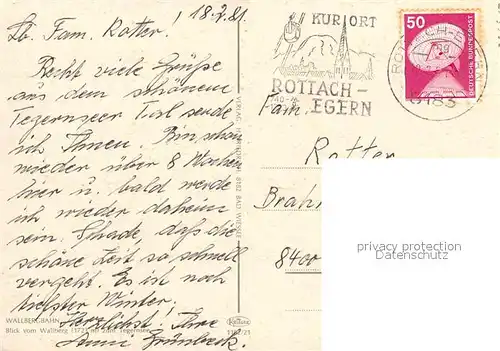 18.2.81
Lb. Fam. Rotter.
Recht viele Grüße
aus dem schönen
Tegernseer Tal sende
ich Ihnen. Bin schon
wieder über 8 Wochen
hier u. bald werde
ich wieder daheim
sein. Schade, daß die
schöne Zeit so schnell
vergeht. Es ist noch
tiefster Winter.
Herzlichst Ihre
Grünbeck
WALLBERGBAHN
Blick vom Wallberg (1722 m) zum Tegernsee
8182 BAD WIESSEE
1162/21
KURORT
ROTTACH-
EGERN
50
DEUTSCHE BUNDESPOST
8183
Fam.
Rotter
8400
privacy protection
Datenschutz